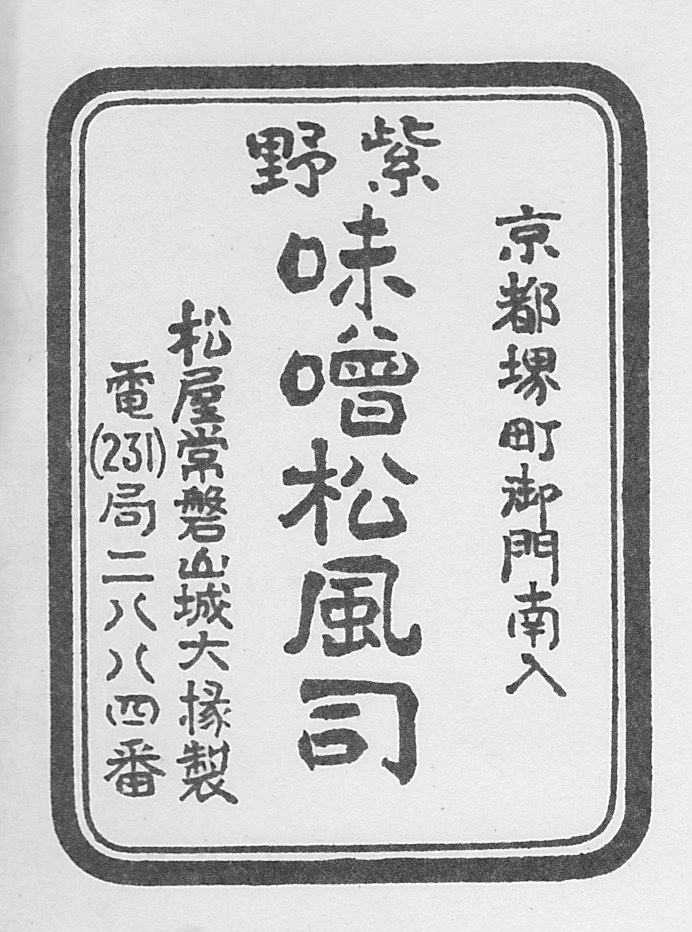 京都堺町御門南入
紫野
味噌松風司
松屋常磐山城大掾製
電(231)局二八八四番